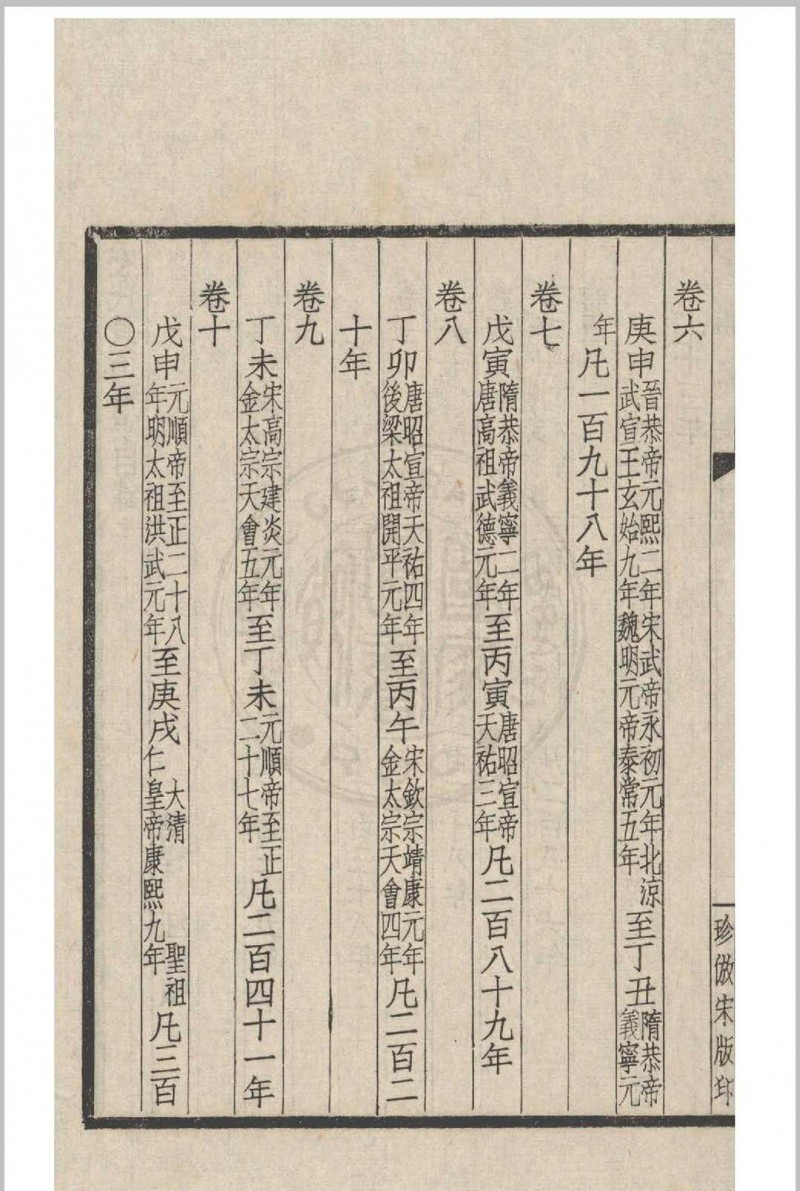 卷六
庚申晉恭帝元熙二年宋武帝永初元年北涼武宣王玄始九年魏明元帝泰常五年至丁丑隋恭帝義寧元
年凡一百九十八年
卷七
戊寅隋恭帝義寧二年唐高祖武德元年至丙寅唐昭宣帝天祐三年凡二百八十九年
卷八
丁卯唐昭宣帝天祐四年後梁太祖開平元年至丙午宋欽宗靖康元年金太宗天會四年凡二百二
十年
卷九
丁未宋高宗建炎元年金太宗天會五年至丁未元順帝至正二十七年凡二百四十一年
卷十
戊申元順帝至正二十八年明太祖洪武元年至庚戌大清聖祖仁皇帝康熙九年凡三百
〇三年
珍倣宋版印